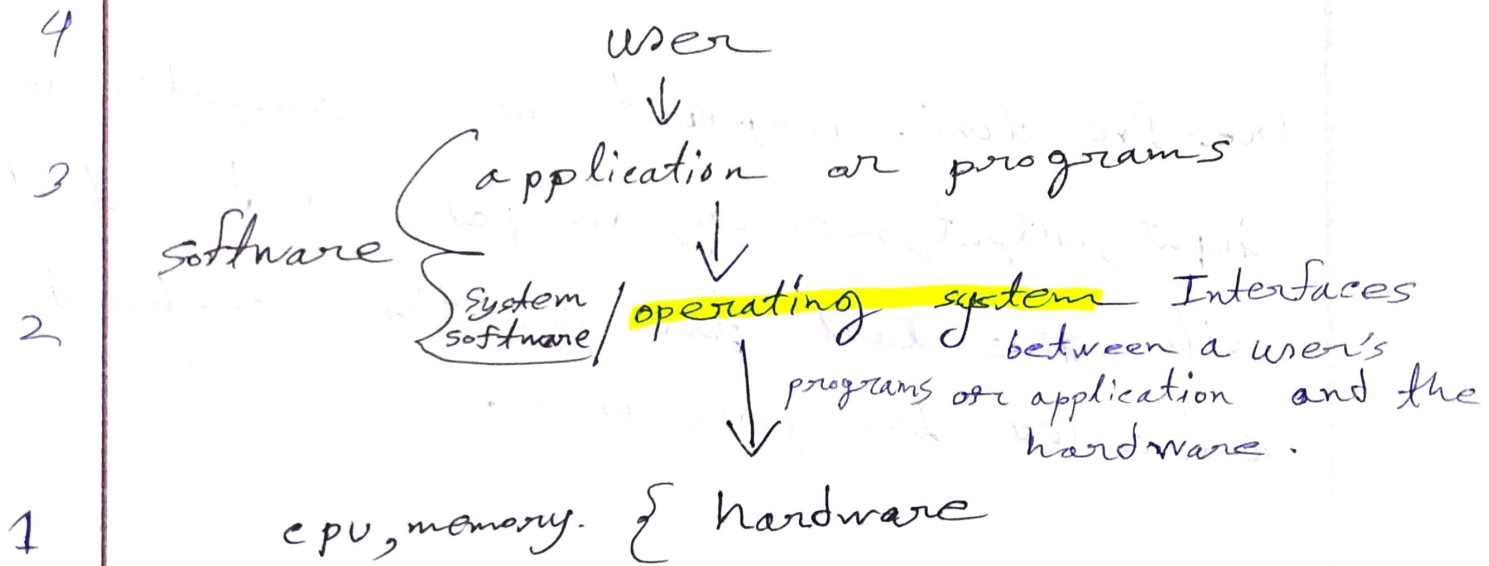 4 user
↓
3 application or programs
↓
software
System
software / operating system Interfaces
2 between a user's
programs or application and the
hardware.
↓
1 cpu, memory. { hardware